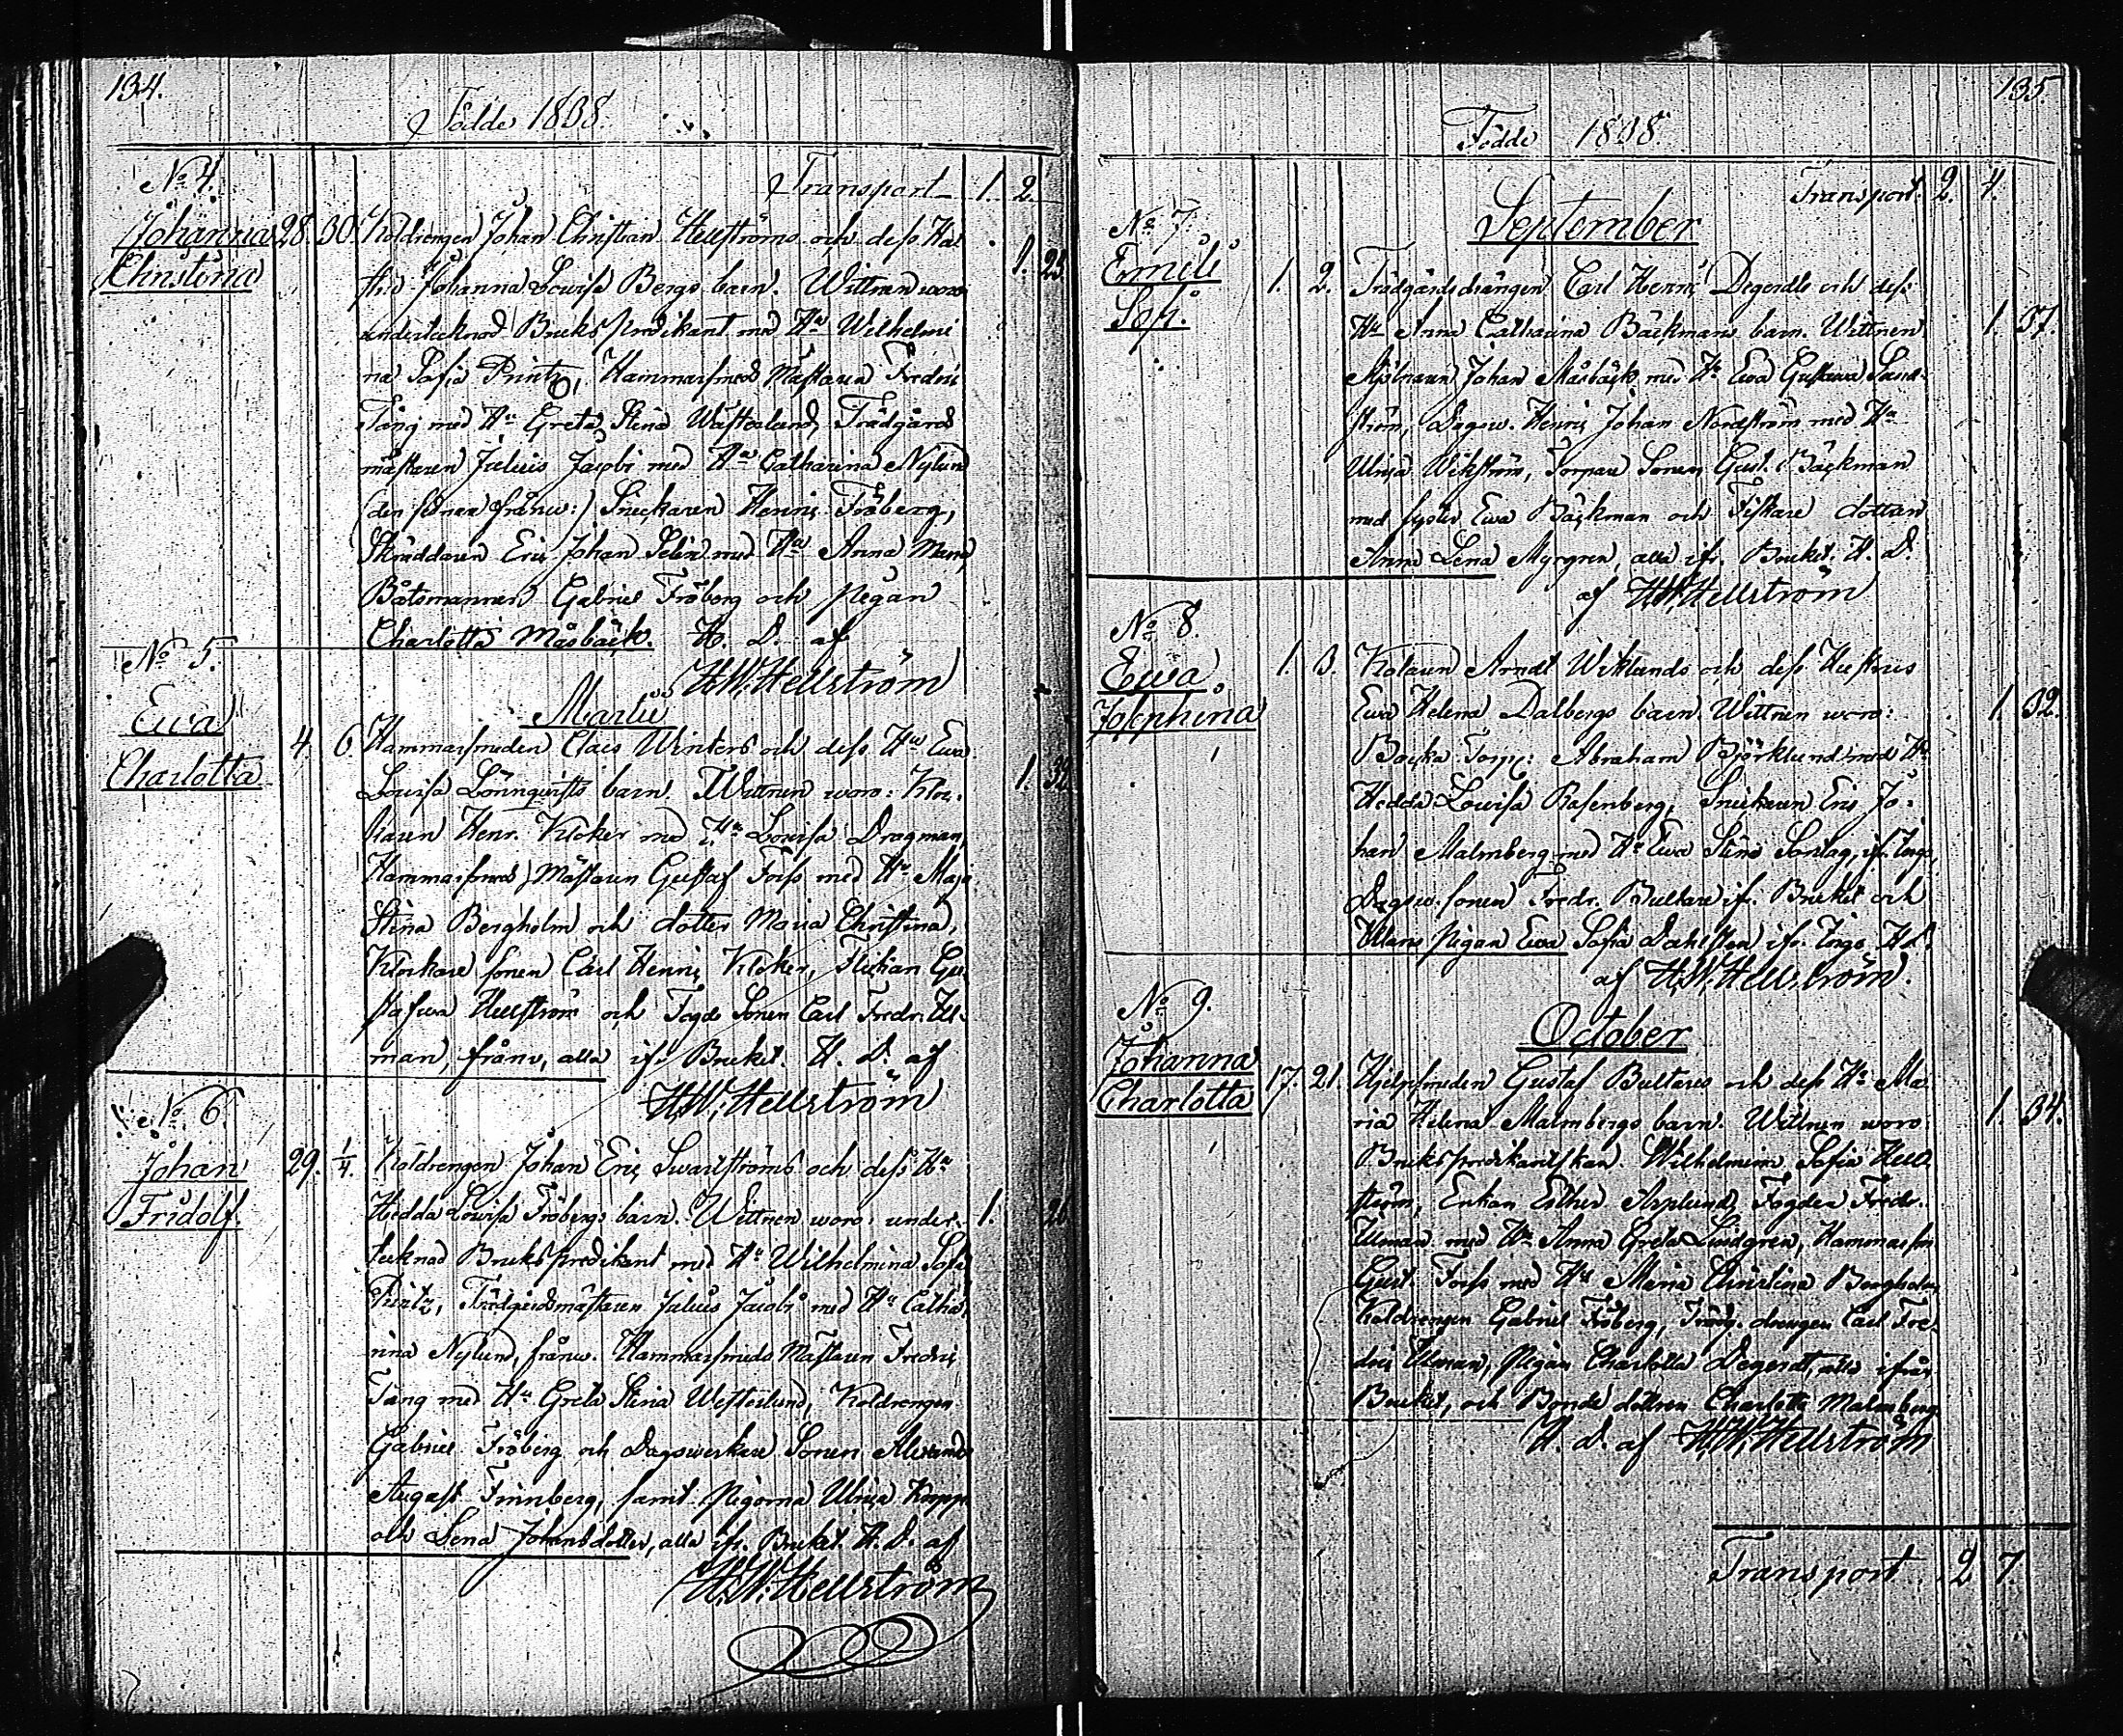 134.
Födde 1838.
Transport 1. 2.
No 4.
Johanna Christina
28. 30. Koldrengen Johan Christian Hellströms och dess Hu-
stru Johanna Lowisa Bergs barn. Wittnen woro 1. 23.
undertecknad Bruks predikant med Hu Wilhelmi
na Sofia Printz, Hammarsmeds Mästaren Fredric
Tång med Hu Greta Stina Wästerlund, Trädgårds
mästaren Julius Jacobi med Hu Catharina Nylund
(den senare frånv:) Snickaren Henric Fröberg,
Skräddaren Eric Johan Selin med Hu Anna Maria,
Båtsmannen Gabriel Fröberg och pigan
Charlotta Måsbäck. H. D. af
H.W. Hellström
No 5.
Ewa
Charlotta
Martii
4. 6. Hammarsmeden Claes Winters och dess Hu Ewa
Lowisa Lönnqvists barn. Wittnen woro: Kloc- 1. 32.
karen Henr. Kloker med Hu Lowisa Dragman,
Hammarsmeds Mästaren Gustaf Forss med Hu Maja
Stina Bergholm och dotter Maria Christina,
Klockare sonen Carl Henric Kloker, Flickan Gu-
stafwa Hellström och Fogde Sonen Carl Fredr. Ul-
man, frånv, alla ifr. Bruket. H. D. af
H.W. Hellström
No 6.
Johan
Fridolf.
29. 1/4. Koldrengen Johan Eric Swartströms och dess Hu
Hedda Lowisa Fröbergs barn. Wittnen woro: under- 1. 26
tecknad Brukspredikant med Hu Wilhelmina Sofia
Printz, Trädgårdsmästaren Julius Jacobi med Hu Catha-
rina Nylund, frånv. Hammarsmeds Mästaren Fredric
Tång med Hu Greta Stina Westerlund, Koldrengen
Gabriel Fröberg och Dagswerkare Sonen Alexander
August Finnberg, samt pigorna Ulrica
och Lena Johansdotter, alla ifr. Bruket. H. D. af
H.W. Hellström
135.
Födde 1838.
Transport. 2. 4.
September
No 7.
Emeli
Sofi.
1. 2. Trädgårdsdrängen Carl Henric Degerdls och dess
Hu Anna Catharina Bäckmans barn. Wittnen 1. 37
Mjölnaren Johan Måsbäck med Hu Ewa Gustawa Sand-
ström, Dagsw. Henric Johan Nordström med Hu
Ulrica Wikström, Torpare Sonen Gust. Bäckman
med syster Ewa Bäckman och Fiskare dottren
Anna Lena Myrgren, alla ifr. Bruket. H. D.
af H.W. Hellström
No 8.
Ewa
Josephina
1. 3. Kolaren Arndt Wiklunds och dess Hustrus
Ewa Helena Dalbergs barn. Wittnen woro: 1. 32.
Backa Torp: Abraham Björklund med Hu
Hedda Lowisa Rosenberg, Snickaren Eric Jo-
han Malmberg med Hu Ewa Stina Sontag, ifr. Ingo,
Dagsw. sonen Fredr. Bultare ifr. Bruket och
pigan Ewa Sofia Dahlsten ifr. Ingo. H. D.
af H.W. Hellström.
No 9.
Johanna
Charlotta
October
17. 21. Hjelpsmeden Gustaf Bultares och dess Hu Ma-
ria Helena Malmbergs barn. Wittnen woro: 1. 34.
Brukspredikantskan Wilhelmina Sofia Hell-
ström, Enkan Esther Asplund, Fogden Fredr.
Ulman med Hu Anna Greta Lindgren, Hammarsm.
Gust. Forss med Hu Maria Christina Bergholm,
Koldrengen Gabriel Fröberg, Trädg. drengen Carl Fre-
dric Ulman, Pigan Charlotta Degerdt, alla ifrån
Bruket, och Bonde dottren Charlotta Malmberg
H. D. af H.W. Hellström
Transport. 2 7.